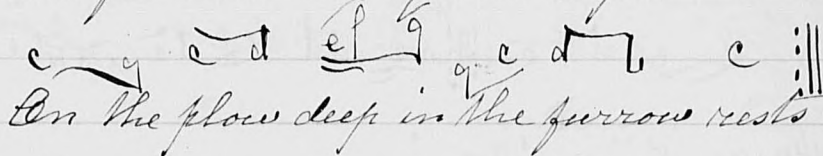 c g c d e f g g c d c
On the plow deep in the furrow rests